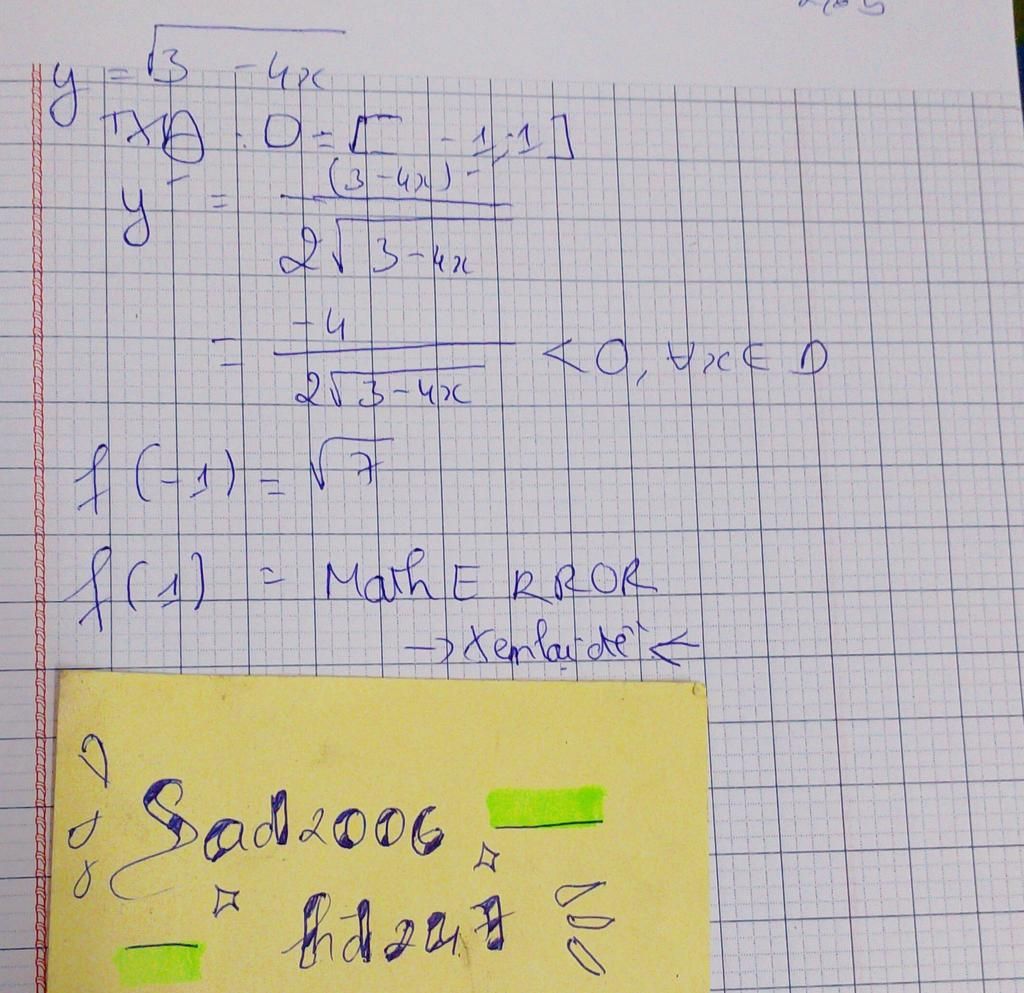 y = √3 - 4x
TXĐ : D = [ -1;1 ]
y' = (3-4x)' / 2√3-4x
= -4 / 2√3-4x < 0, ∀x ∈ D
f(-1) = √7
f(1) = Math ERROR
→ Xem lại đề ←
Sad2006
hd247